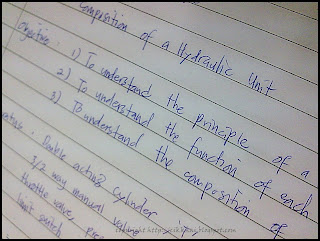 Composition of a Hydraulic Unit
Objective : 1) To understand the principle of a
2) To understand the function of each
3) To understand the composition of
Double acting cylinder
3/2 way manual valve
throttle valves
limit switch